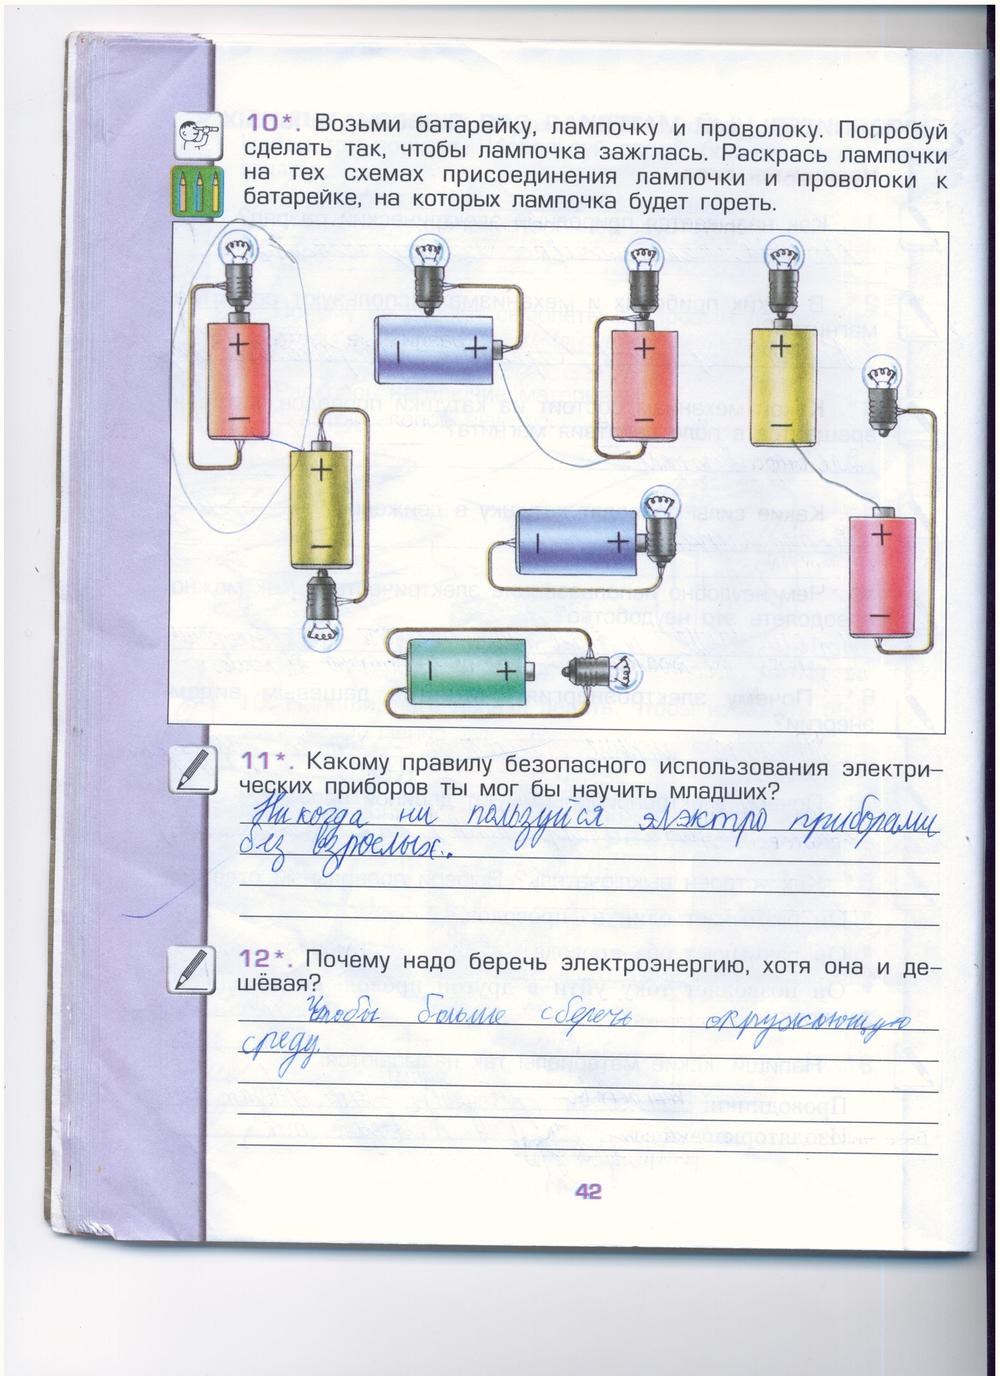 10*. Возьми батарейку, лампочку и проволоку. Попробуй
сделать так, чтобы лампочка зажглась. Раскрась лампочки
на тех схемах присоединения лампочки и проволоки к
батарейке, на которых лампочка будет гореть.
+
−
− +
+
−
+
−
+
−
− +
+
−
− +
11*. Какому правилу безопасного использования электри–
ческих приборов ты мог бы научить младших?
Никогда ни пользуйся элэктро приборами
без взрослых.
12*. Почему надо беречь электроэнергию, хотя она и де–
шёвая?
Чтобы больше сберечь окружающую
среду.
42